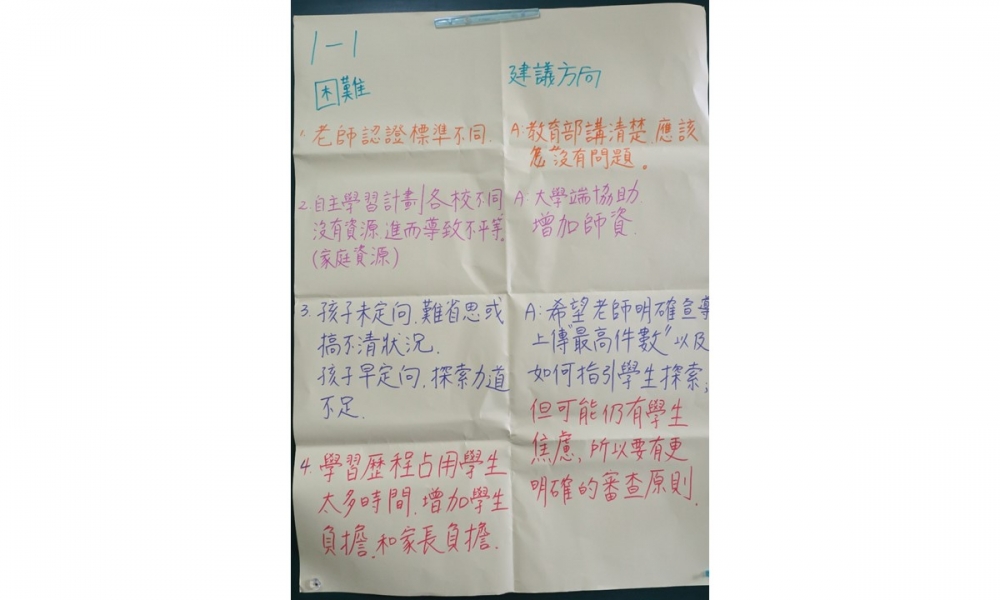 1-1
困難
1. 老師認證標準不同.
2. 自主學習計劃各校不同
沒有資源.進而導致不平等.
(家庭資源)
3. 孩子未定向.難省思或
搞不清狀況.
孩子早定向.探索力道
不足.
4. 學習歷程占用學生
太多時間.增加學生
負擔.和家長負擔.
建議方向
A:教育部講清楚.應該
沒有問題。
A:大學端協助.
增加師資.
A:希望老師明確宣導
上傳"最高件數"以及
如何指引學生探索;
但可能仍有學生
焦慮,所以要有更
明確的審查原則.